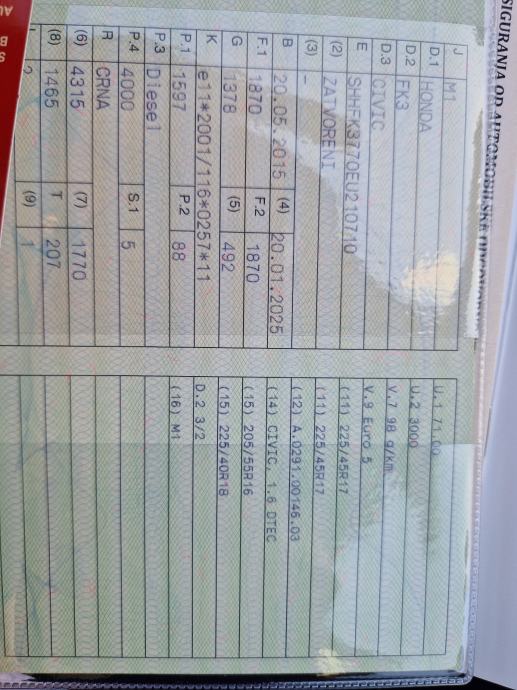 SIGURANJA OD AUTOMOBILSKE
J M1
D.1 HONDA
D.2 FK3
D.3 CIVIC
E SHHFK3770EU210710
(2) ZATVORENI
(3) –
B 20.05.2015 (4) 20.01.2025
F.1 1870 F.2 1870
G 1378 (5) 492
K e11*2001/116*0257*11
P.1 1597 P.2 88
P.3 Diesel
P.4 4000 S.1 5
R CRNA
(6) 4315 (7) 1770
(8) 1465 T 207
L 2 (9) 1
U.1 71.00
U.2 3000
V.7 98 g/km
V.9 Euro 5
(11) 225/45R17
(11) 225/45R17
(12) A.0291.00146.03
(14) CIVIC, 1.6 DTEC
(15) 205/55R16
(15) 225/40R18
D.2 3/2
(16) M1